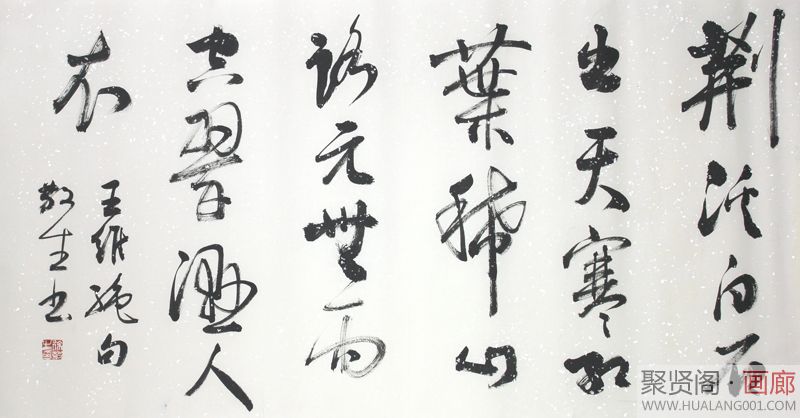 荆溪白石
出天寒红
葉稀山
路元無雨
空翠濕人
衣
王维絶句
敬生书
聚贤阁·画廊
WWW.HUALANG001.COM